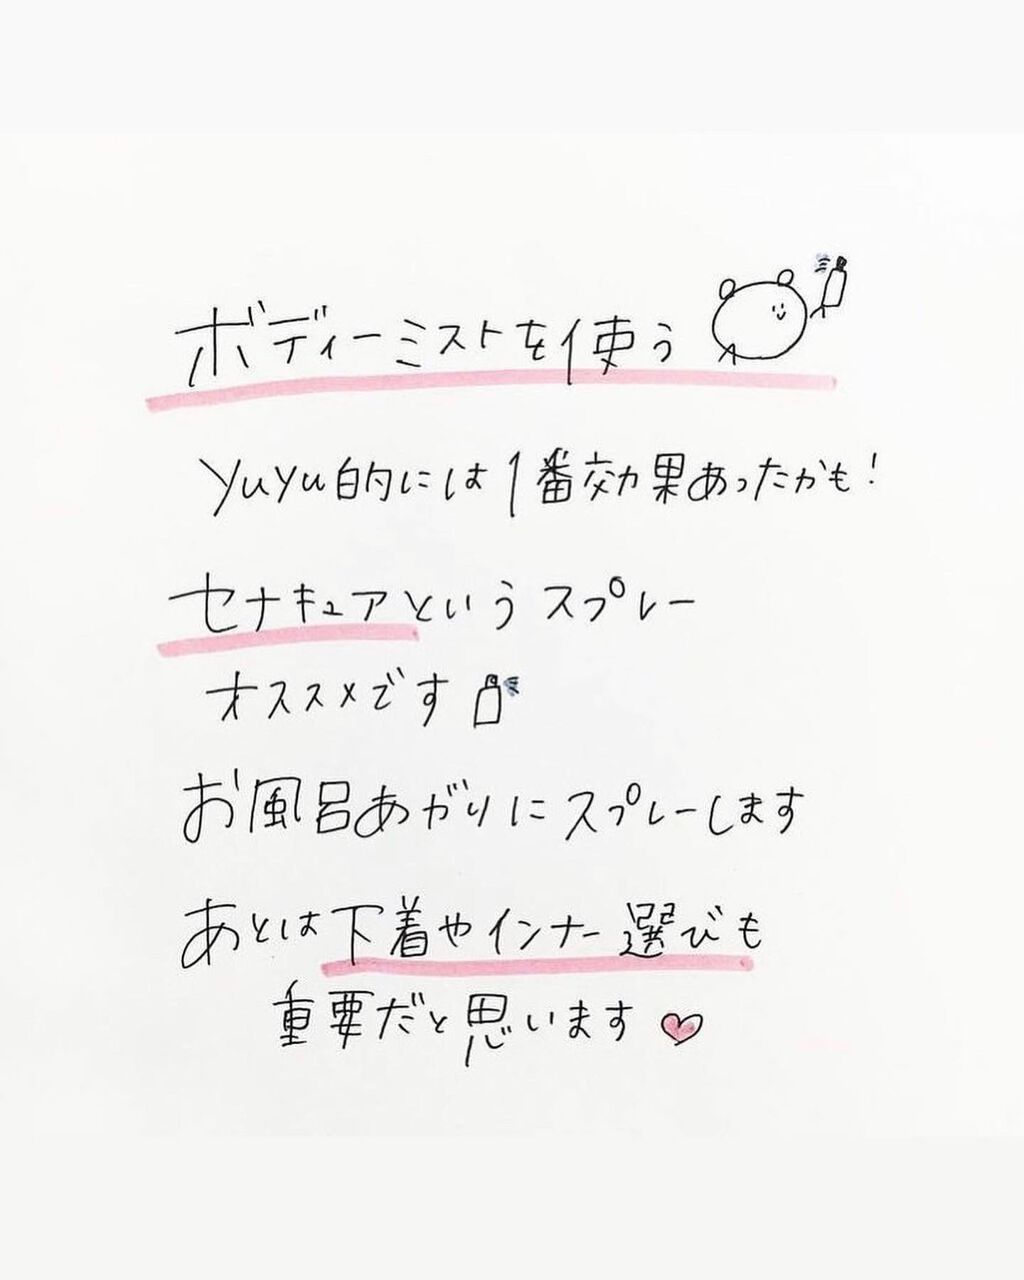 ボディーミストを使う
yuyu的には1番効果あったかも！
セナキュアというスプレー
オススメです
お風呂あがりにスプレーします
あとは下着やインナー選びも
重要だと思います